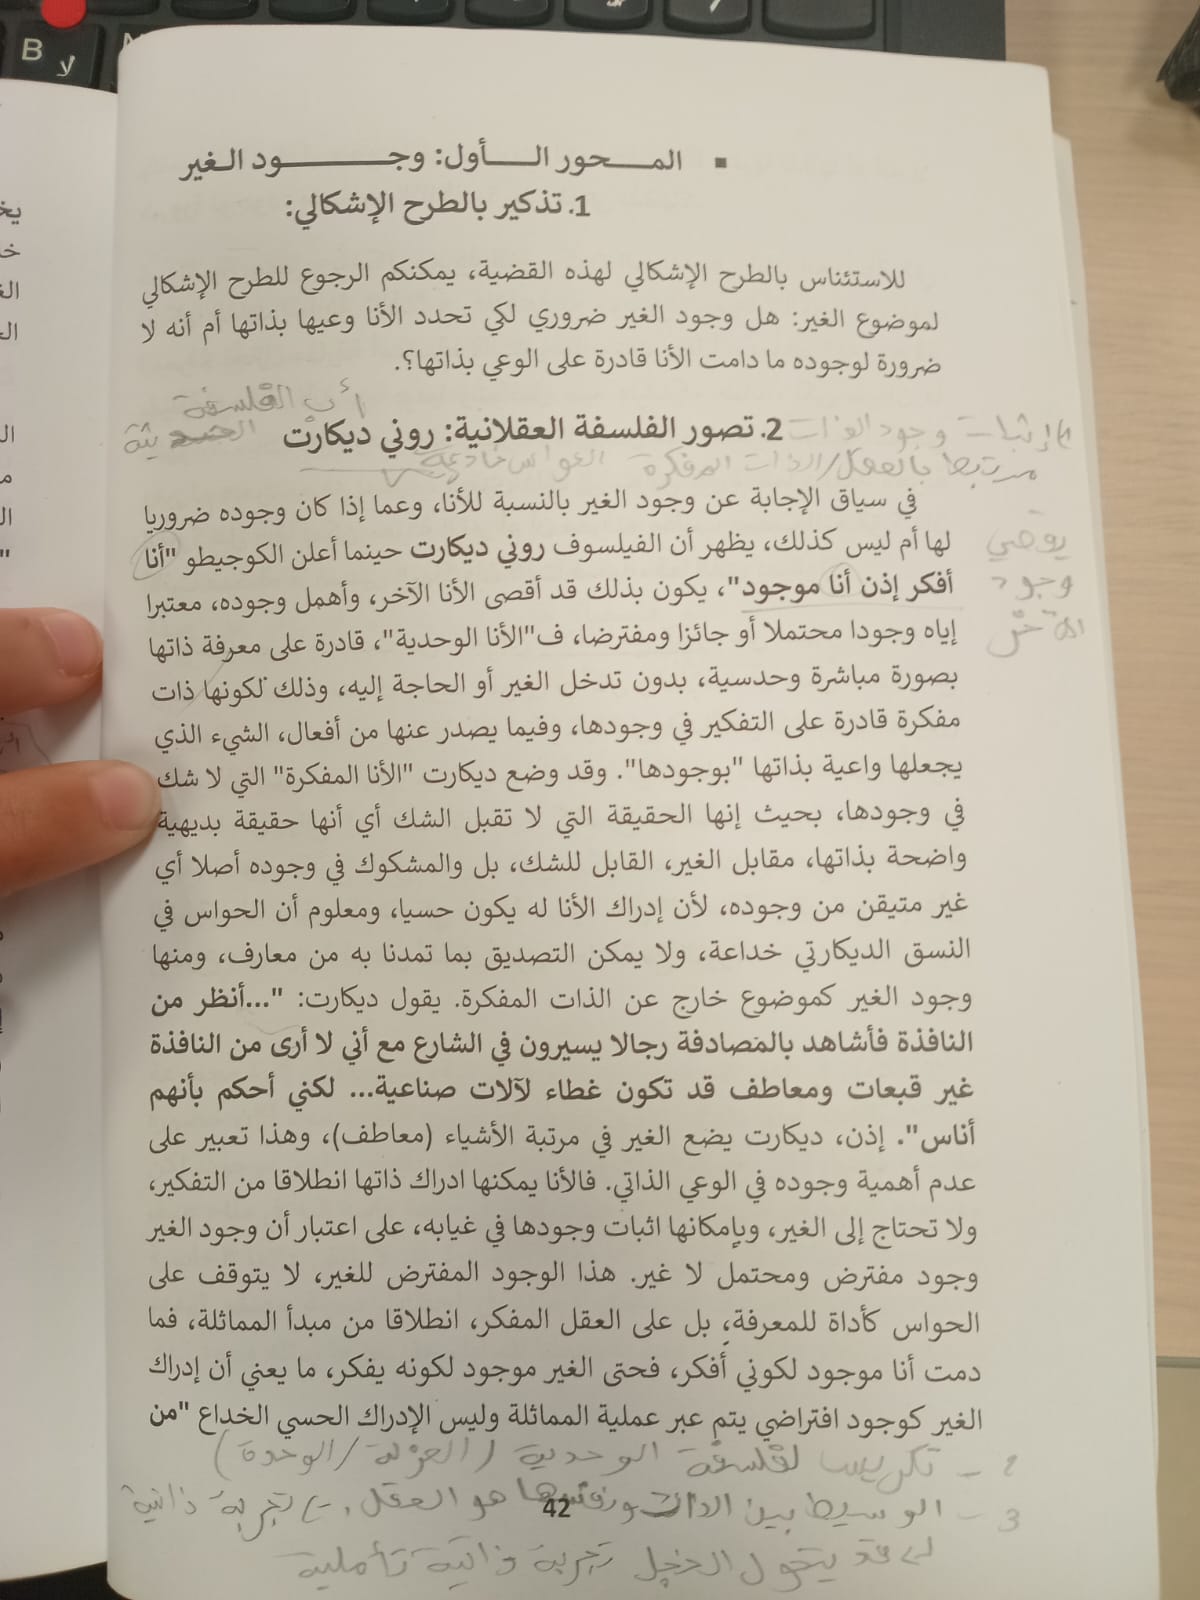 B
لا
المحور الأول: وجود الغير
1. تذكير بالطرح الإشكالي:
للاستئناس بالطرح الإشكالي لهذه القضية، يمكنكم الرجوع للطرح الإشكالي
لموضوع الغير: هل وجود الغير ضروري لكي تحدد الأنا وعيها بذاتها أم أنه لا
ضرورة لوجوده ما دامت الأنا قادرة على الوعي بذاتها؟.
أب الفلسفة
الحديثة
2. تصور الفلسفة العقلانية: روني ديكارت
1) إثبات وجود الذات
مرتبط بالعقل/الذات المفكرة
الحواس خادعة
في سياق الإجابة عن وجود الغير بالنسبة للأنا، وعما إذا كان وجوده ضروريا
لها أم ليس كذلك، يظهر أن الفيلسوف روني ديكارت حينما أعلن الكوجيطو "أنا
أفكر إذن أنا موجود"، يكون بذلك قد أقصى الأنا الآخر، وأهمل وجوده، معتبرا
إياه وجودا محتملا أو جائزا ومفترضا، ف"الأنا الوحدية"، قادرة على معرفة ذاتها
بصورة مباشرة وحدسية، بدون تدخل الغير أو الحاجة إليه، وذلك لكونها ذات
مفكرة قادرة على التفكير في وجودها، وفيما يصدر عنها من أفعال، الشيء الذي
يجعلها واعية بذاتها "بوجودها". وقد وضع ديكارت "الأنا المفكرة" التي لا شك
في وجودها، بحيث إنها الحقيقة التي لا تقبل الشك أي أنها حقيقة بديهية
واضحة بذاتها، مقابل الغير، القابل للشك، بل والمشكوك في وجوده أصلا أي
غير متيقن من وجوده، لأن إدراك الأنا له يكون حسيا، ومعلوم أن الحواس في
النسق الديكارتي خداعة، ولا يمكن التصديق بما تمدنا به من معارف، ومنها
وجود الغير كموضوع خارج عن الذات المفكرة. يقول ديكارت: "...أنظر من
النافذة فأشاهد بالمصادفة رجالا يسيرون في الشارع مع أني لا أرى من النافذة
غير قبعات ومعاطف قد تكون غطاء لآلات صناعية... لكني أحكم بأنهم
أناس". إذن، ديكارت يضع الغير في مرتبة الأشياء (معاطف)، وهذا تعبير على
عدم أهمية وجوده في الوعي الذاتي. فالأنا يمكنها ادراك ذاتها انطلاقا من التفكير،
ولا تحتاج إلى الغير، وبإمكانها اثبات وجودها في غيابه، على اعتبار أن وجود الغير
وجود مفترض ومحتمل لا غير. هذا الوجود المفترض للغير، لا يتوقف على
الحواس كأداة للمعرفة، بل على العقل المفكر، انطلاقا من مبدأ المماثلة، فما
دمت أنا موجود لكوني أفكر، فحتى الغير موجود لكونه يفكر، ما يعني أن إدراك
الغير كوجود افتراضي يتم عبر عملية المماثلة وليس الإدراك الحسي الخداع "من
يقصي
وجود
الآخر
2 - تكريس لفلسفة الوحدية (العزلة/الوحدة)
3 - الوسيط بين الذات ونفسها هو العقل. تجربة ذاتية
42
قد يتحول الخجل تجربة ذاتية تأملية